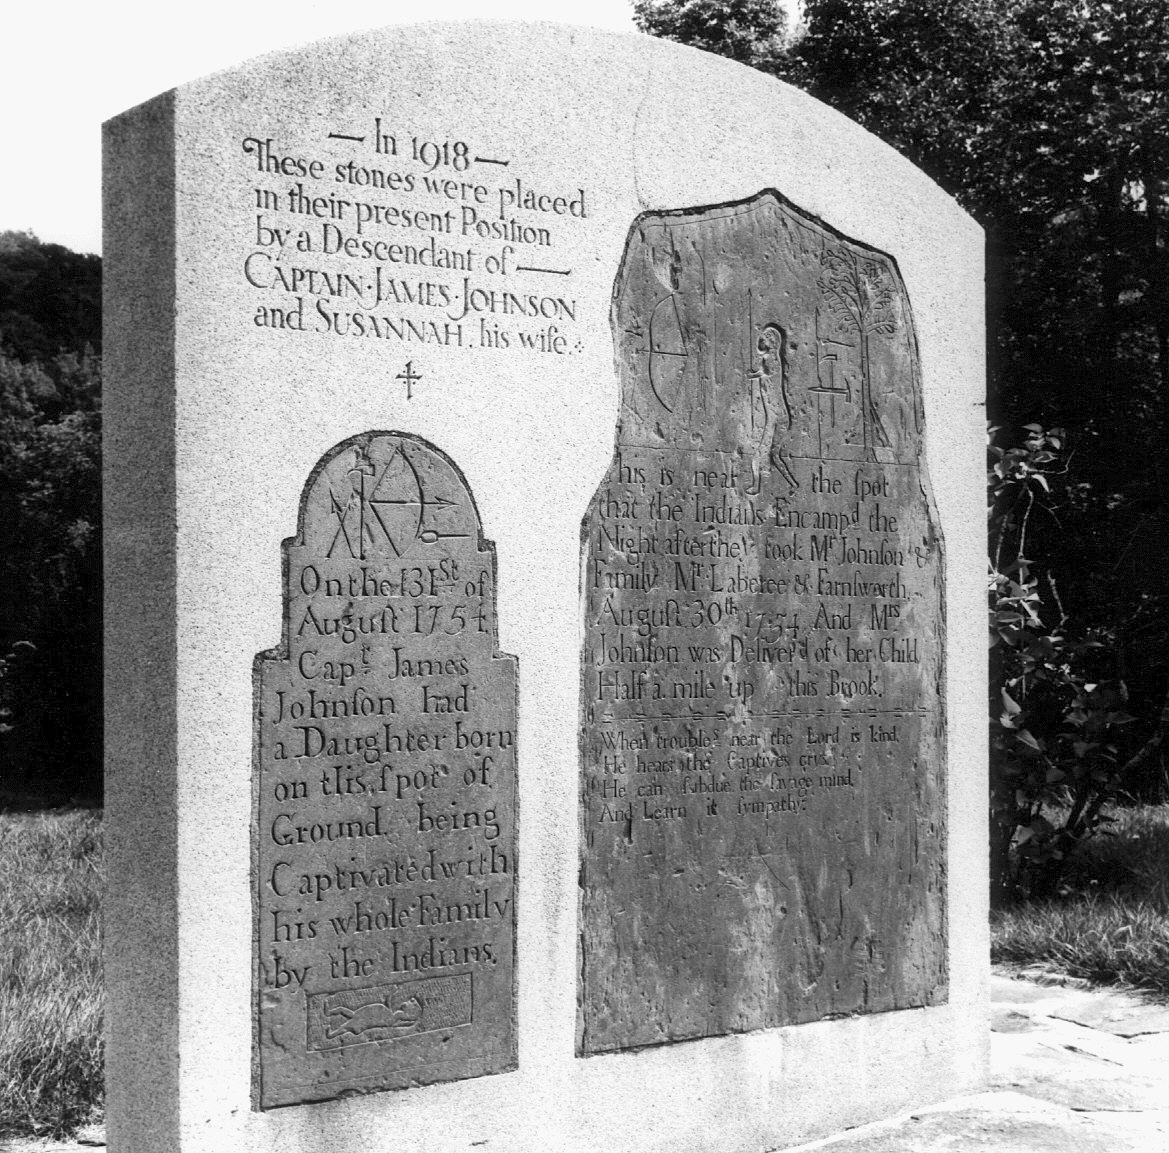 — In 1918 —
These stones were placed
in their present Position
by a Descendant of —
CAPTAIN·JAMES·JOHNSON
and SUSANNAH, his wife.
On the 31St of
Auguſt 1754
Capt James
Johnſon had
a Daughter born
on this ſpot of
Ground, being
Captivated with
his whole Family
by the Indians.
This is near the ſpot
that the Indians Encamp'd the
Night after they took Mr Johnſon &
Family Mr Laberee & Farnſworth
Auguſt 30th 1754 And Mrs
Johnſon was Deliver'd of her Child
Half a mile up this Brook.
When troubles near the Lord is kind,
He hears the Captives crys.
He can ſubdue the ſavage mind,
And Learn it ſympathy.